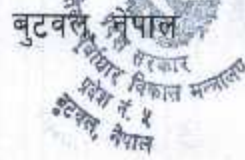 बुटवल, नेपाल
सरकार
विकास मन्त्रालय
प्रदेश नं. ५
बुटवल, नेपाल